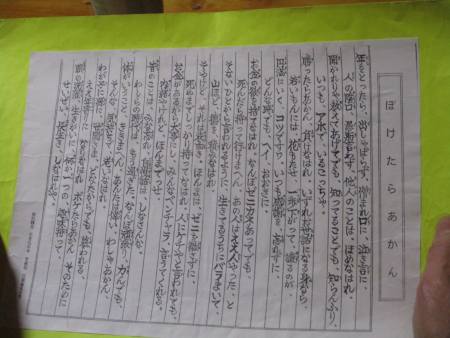 ぼけたらあかん
年をとったら、出しゃばらず、憎まれ口に、泣き言に、
人のかげ口、愚痴言わず、他人のことは、ほめなはれ。
聞かれりゃ教えてあげても、知ってることでも、知らんふり、
いつも、アホでいるこっちゃ。
勝ったらあかん、負けなはれ、いずれお世話になる身なら、
若いもんには、花もたせ、一歩下がって、譲るのが、
円満にいくコツですわ。いつも感謝を忘れずに、
どんな時でも、へえおおきに。
お金の欲を捨てなはれ、なんぼゼニカネあってでも、
死んだら持って行けまへん。あの人はええ人やった、と
そないひとから言われるよう、生きてるうちにバラまいて、
山ほど、徳を積みなはれ。
そやけど、それは表向き、ほんまは、ゼニを離さずに、
死ぬまでしっかり、持ってなはれ。人にケチやと言われても、
お金があるから大事にし、みんなベンチャラ言うてくれる。
内緒やけれど、ほんまでっせ。
昔のことは、みな忘れ、自慢話はしなさんな、
わしらの時代はもう過ぎた、なんぼ頑張り、力んでも、
体がいうこときまへん。あんたは偉い、わしゃあかん、
そんな気持ちで、老いなはれ。
わが子に孫に、世間さま、どなたからでも、慕われる、
ええ年寄りになりなはれ。ボケたらあかん、そのために
頭の洗濯、生きがいに、何か一つの、趣味持って、
せいぜい、長生きしなはれや。